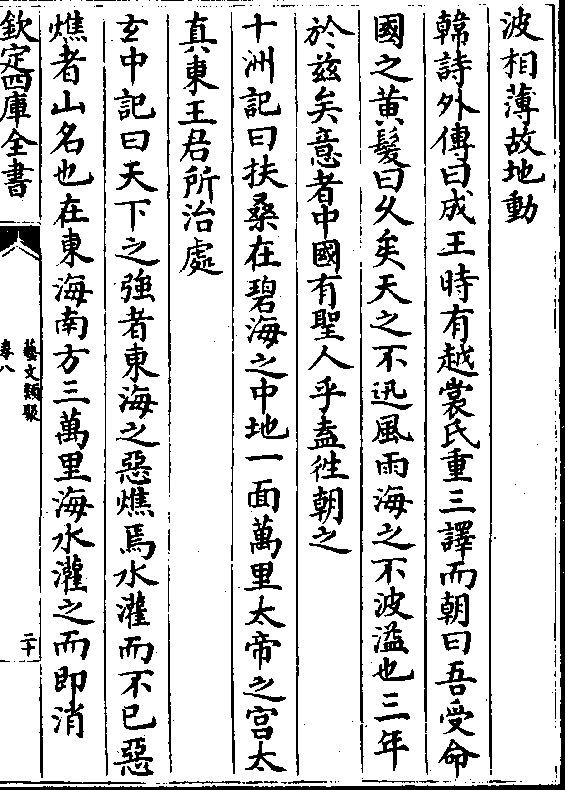 波相薄故地動
韓詩外傳曰成王時有越裳氏重三譯而朝曰吾受命
國之黄髮曰久矣天之不迅風雨海之不波溢也三年
於兹矣意者中國有聖人乎盍徃朝之
十洲記曰扶桑在碧海之中地一面萬里太帝之宫太
真東王君所治處
玄中記曰天下之強者東海之惡燋焉水灌而不已惡
燋者山名也在東海南方三萬里海水灌之而即消
欽定四庫全書
藝文類聚
卷八
二十